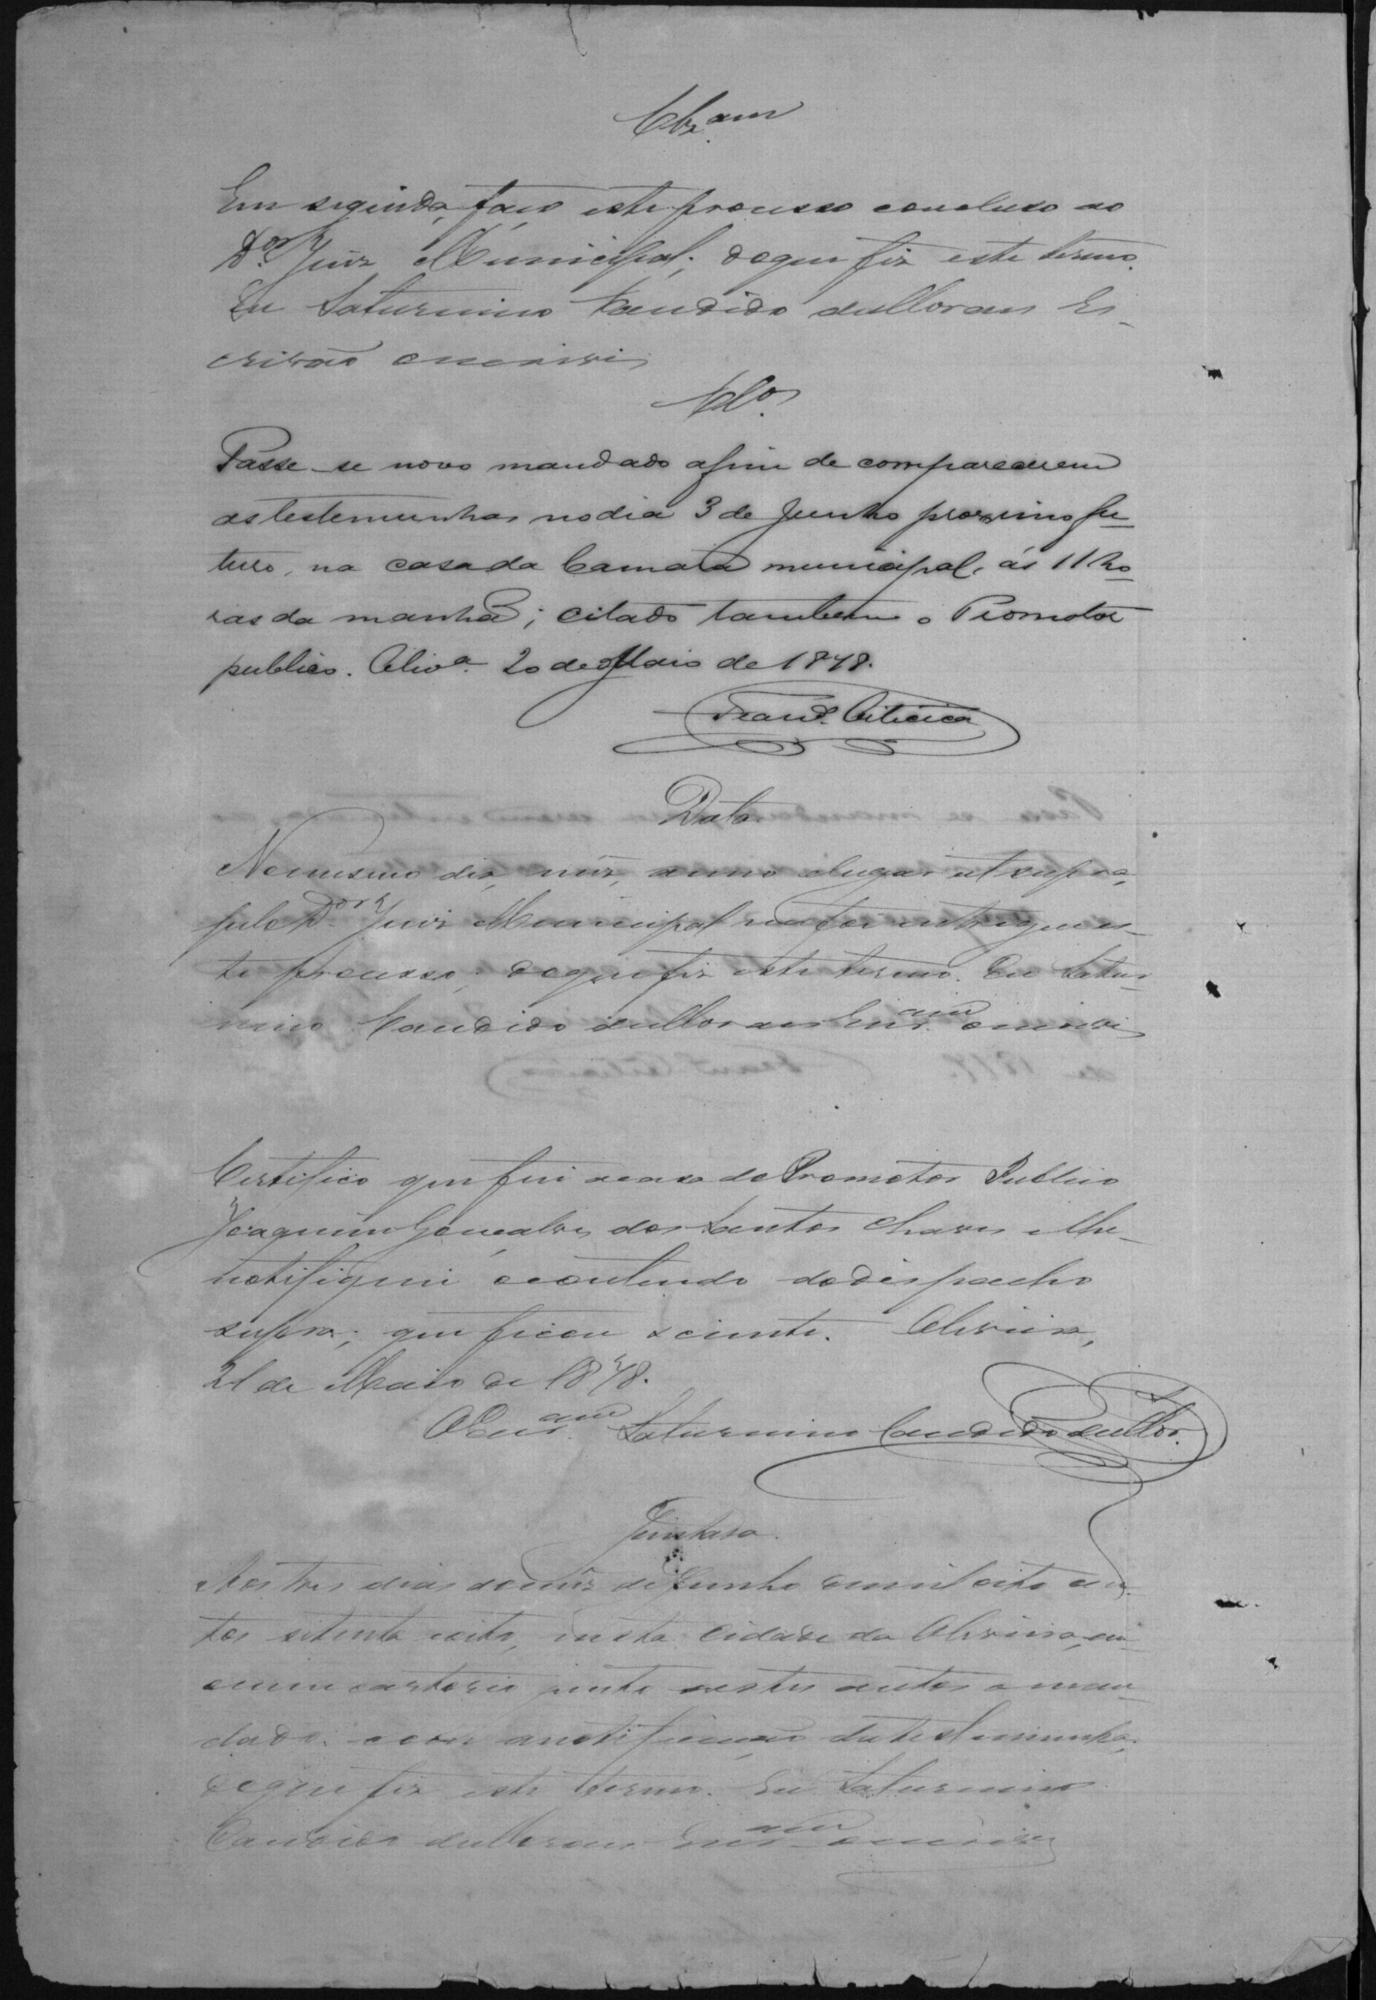 Clz.am
Em seguida, faço este processo concluso ao
Dor Juiz Municipal; do que fiz este termo.
Eu Saturnino Candido de Moraes Es-
crivão o escrivi
Clos
Passe-se novo mandado afim de comparecerem
as testemunhas no dia 3 de Junho proximo fu-
turo, na casa da Camara municipal, ás 11 ho-
ras da manhã; citado tambem o Promotor
publico. Olivª 20 de Maio de 1878.
Data
No mesmo dia, mez, anno e lugar ut supra,
pelo Dor Juiz Municipal me foi entregue es-
te processo; do que fiz este termo. Eu Satur-
nino Candido de Moraes Escr.am o escrivi
Certifico que fui a casa do Promotor Publico
Joaquim Gonçalves dos Santos Chaves e lhe
notifiquei o conteudo do despacho
supra; que ficou sciente. Oliveira,
21 de Maio de 1878.
O Escr.am Saturnino Candido de Mor.
Juntada
Aos tres dias do mez de Junho de mil oito cen-
tos setenta e oito, nesta Cidade da Oliveira, em
o meu cartorio junto a estes autos o man-
dado com a notificação da testemunha;
do que fiz este termo. Eu Saturnino
Candido de Moraes Escr.am o escrivi